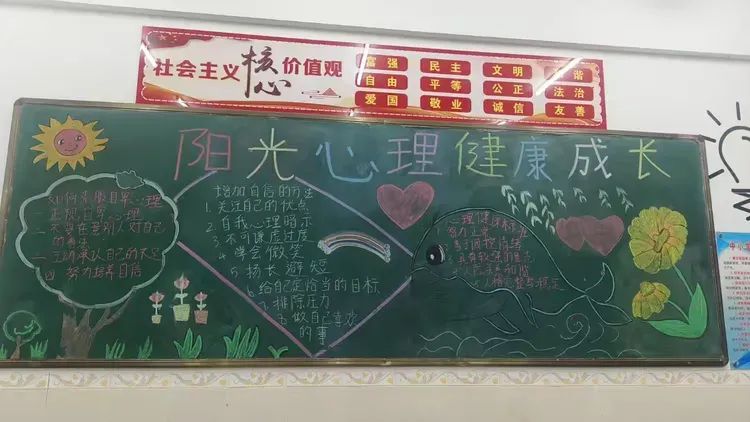 社会主义核心价值观
富强 民主 文明 和谐
自由 平等 公正 法治
爱国 敬业 诚信 友善
阳光心理健康成长
如何克服自卑心理
一 正视自卑心理
二 不要在意别人对自己的看法
三 主动承认自己的不足
四 努力培养自信
增加自信的方法
1. 关注自己的优点
2. 自我心理暗示
3. 不可谦虚过度
4. 学会微笑
5 扬长避短
6. 给自己定恰当的目标
7. 排除压力
8 做自己喜欢的事
心理健康标准
智力正常
善于调控情绪
人际关系和谐